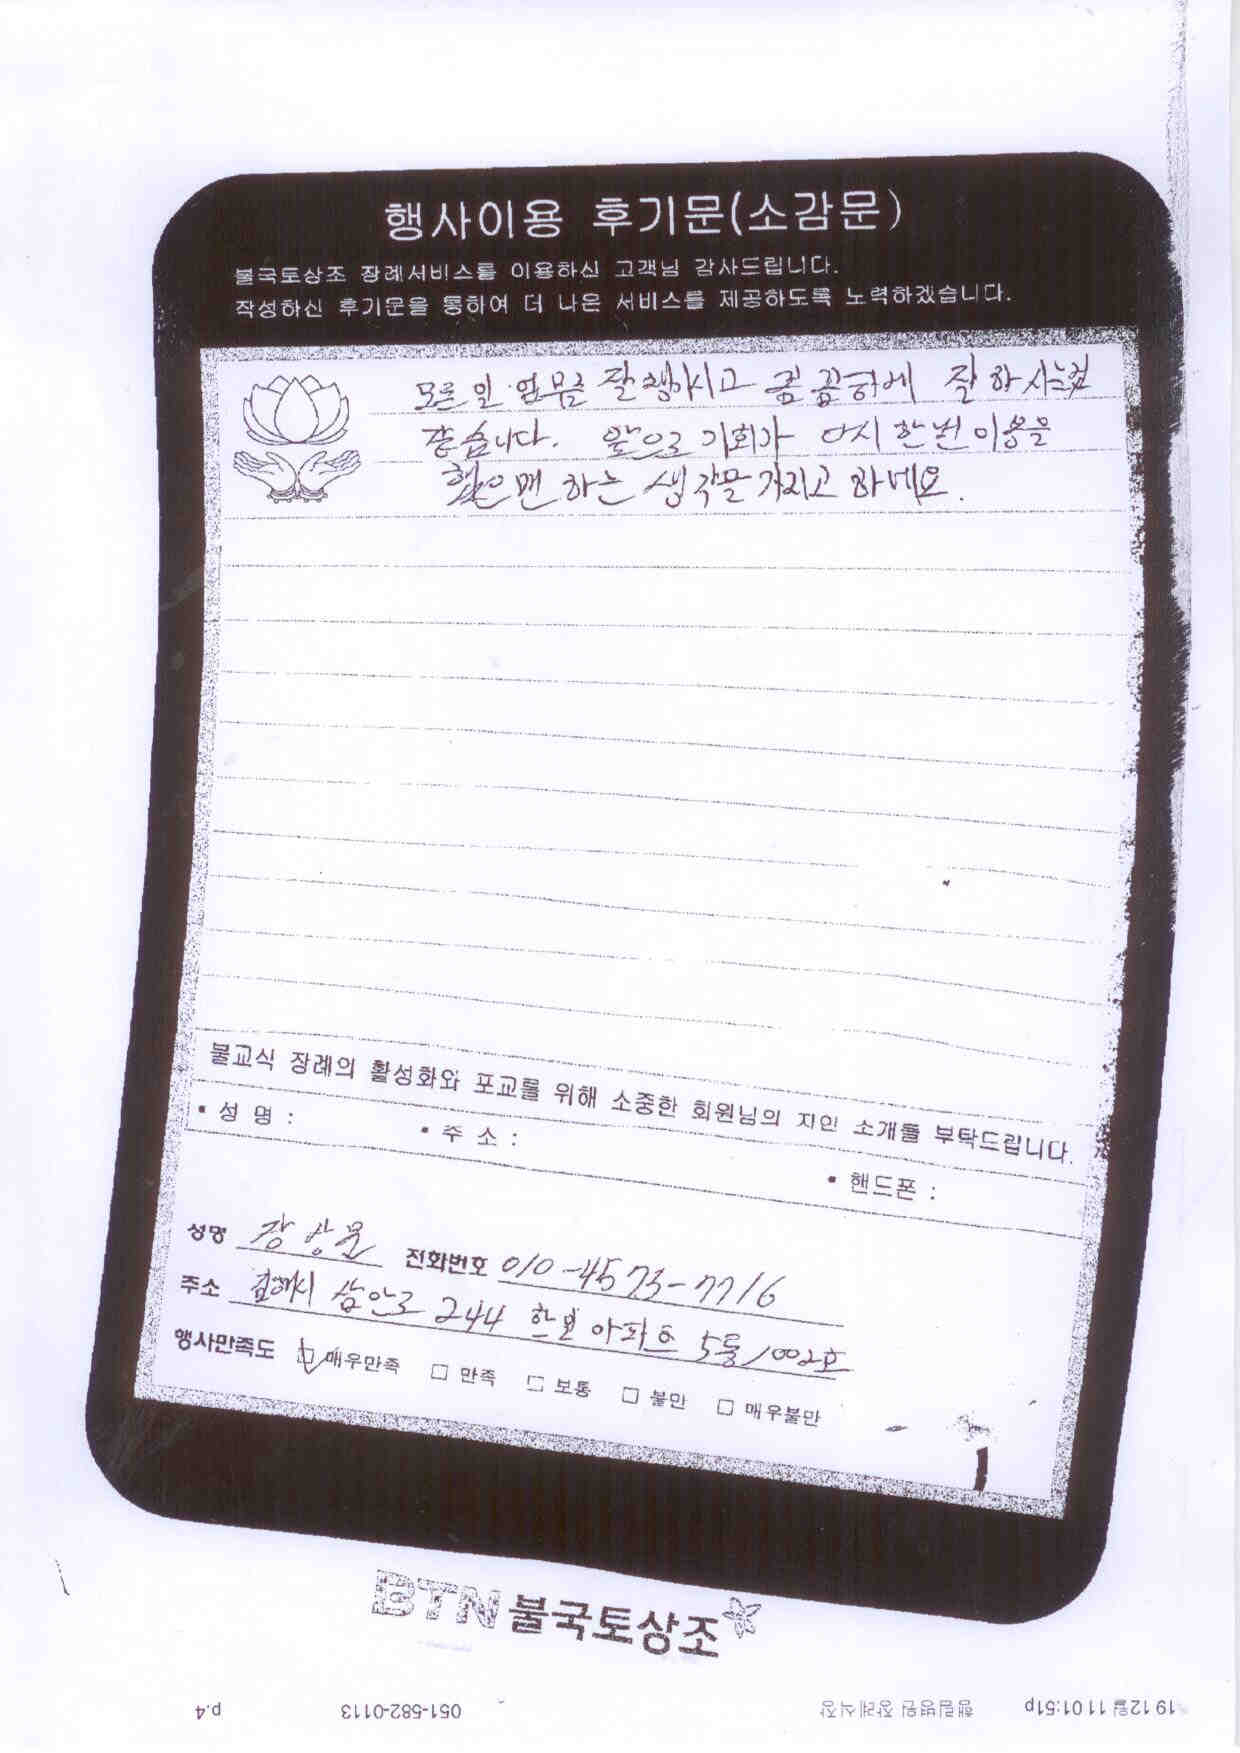 행사이용 후기문(소감문)
불국토상조 장례서비스를 이용하신 고객님 감사드립니다.
작성하신 후기문을 통하여 더 나은 서비스를 제공하도록 노력하겠습니다.
모든 일 업무를 잘 행하시고 꼼꼼하게 잘 하시는것
같습니다. 앞으로 기회가 다시 한번 이용을
했으면 하는 생각을 가지고 하네요.
불교식 장례의 활성화와 포교를 위해 소중한 회원님의 지인 소개를 부탁드립니다.
• 성 명 : • 주 소 : • 핸드폰 :
성명 장상문 전화번호 010-4573-7716
주소 김해시 삼안로 244 한보아파트 5동 1002호
행사만족도 매우만족 만족 보통 불만 매우불만
BTN불국토상조
19 12월 11 01:51p 행림병원장례식장 051-582-0113 p.4